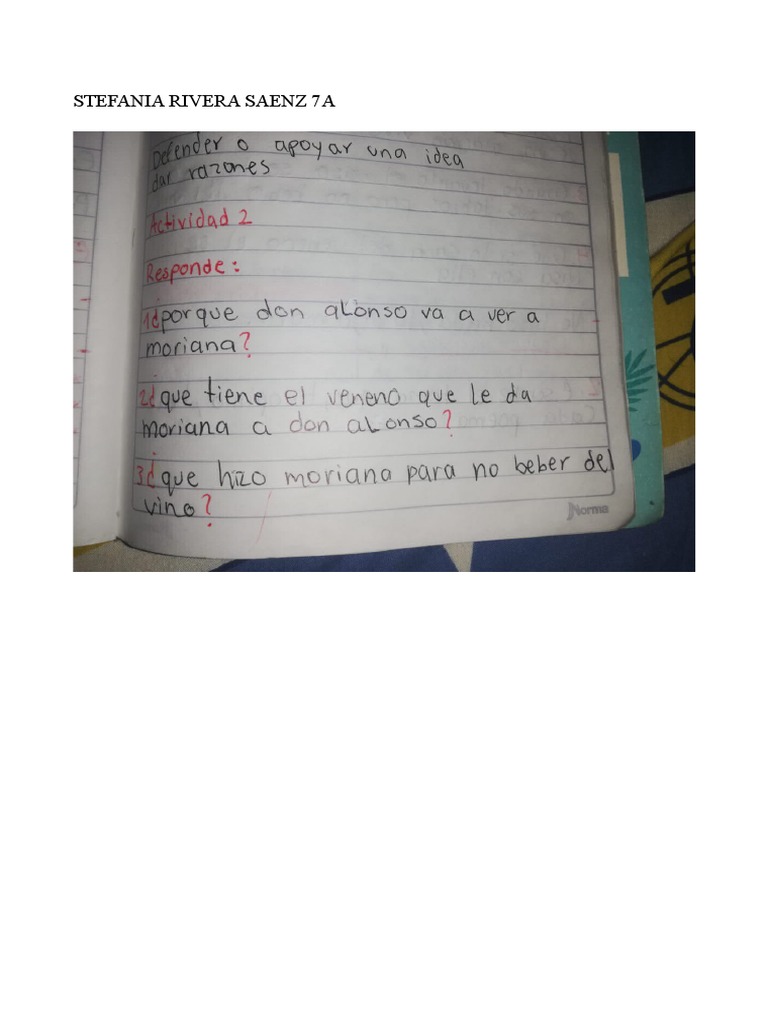 STEFANIA RIVERA SAENZ 7A
Defender o apoyar una idea
dar razones
Actividad 2
Responde:
1¿porque don alonso va a ver a
moriana?
2¿que tiene el veneno que le da
moriana a don alonso?
3¿que hizo moriana para no beber del
vino?
Norma